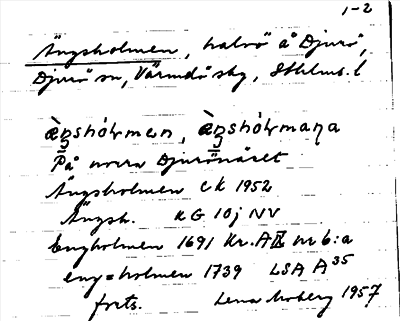 1-2
Ängsholmen, halvö å Djurö,
Djurö sn, Värmdö skg, Sthlms. l
På norra Djurönäset
Ängsholmen CK 1952
Ängsh. KG 10j NV
Engholmen 1691 Kr. A IX nr 6:a
eng=holmen 1739 LSA A 35
forts. Lena Moberg 1957